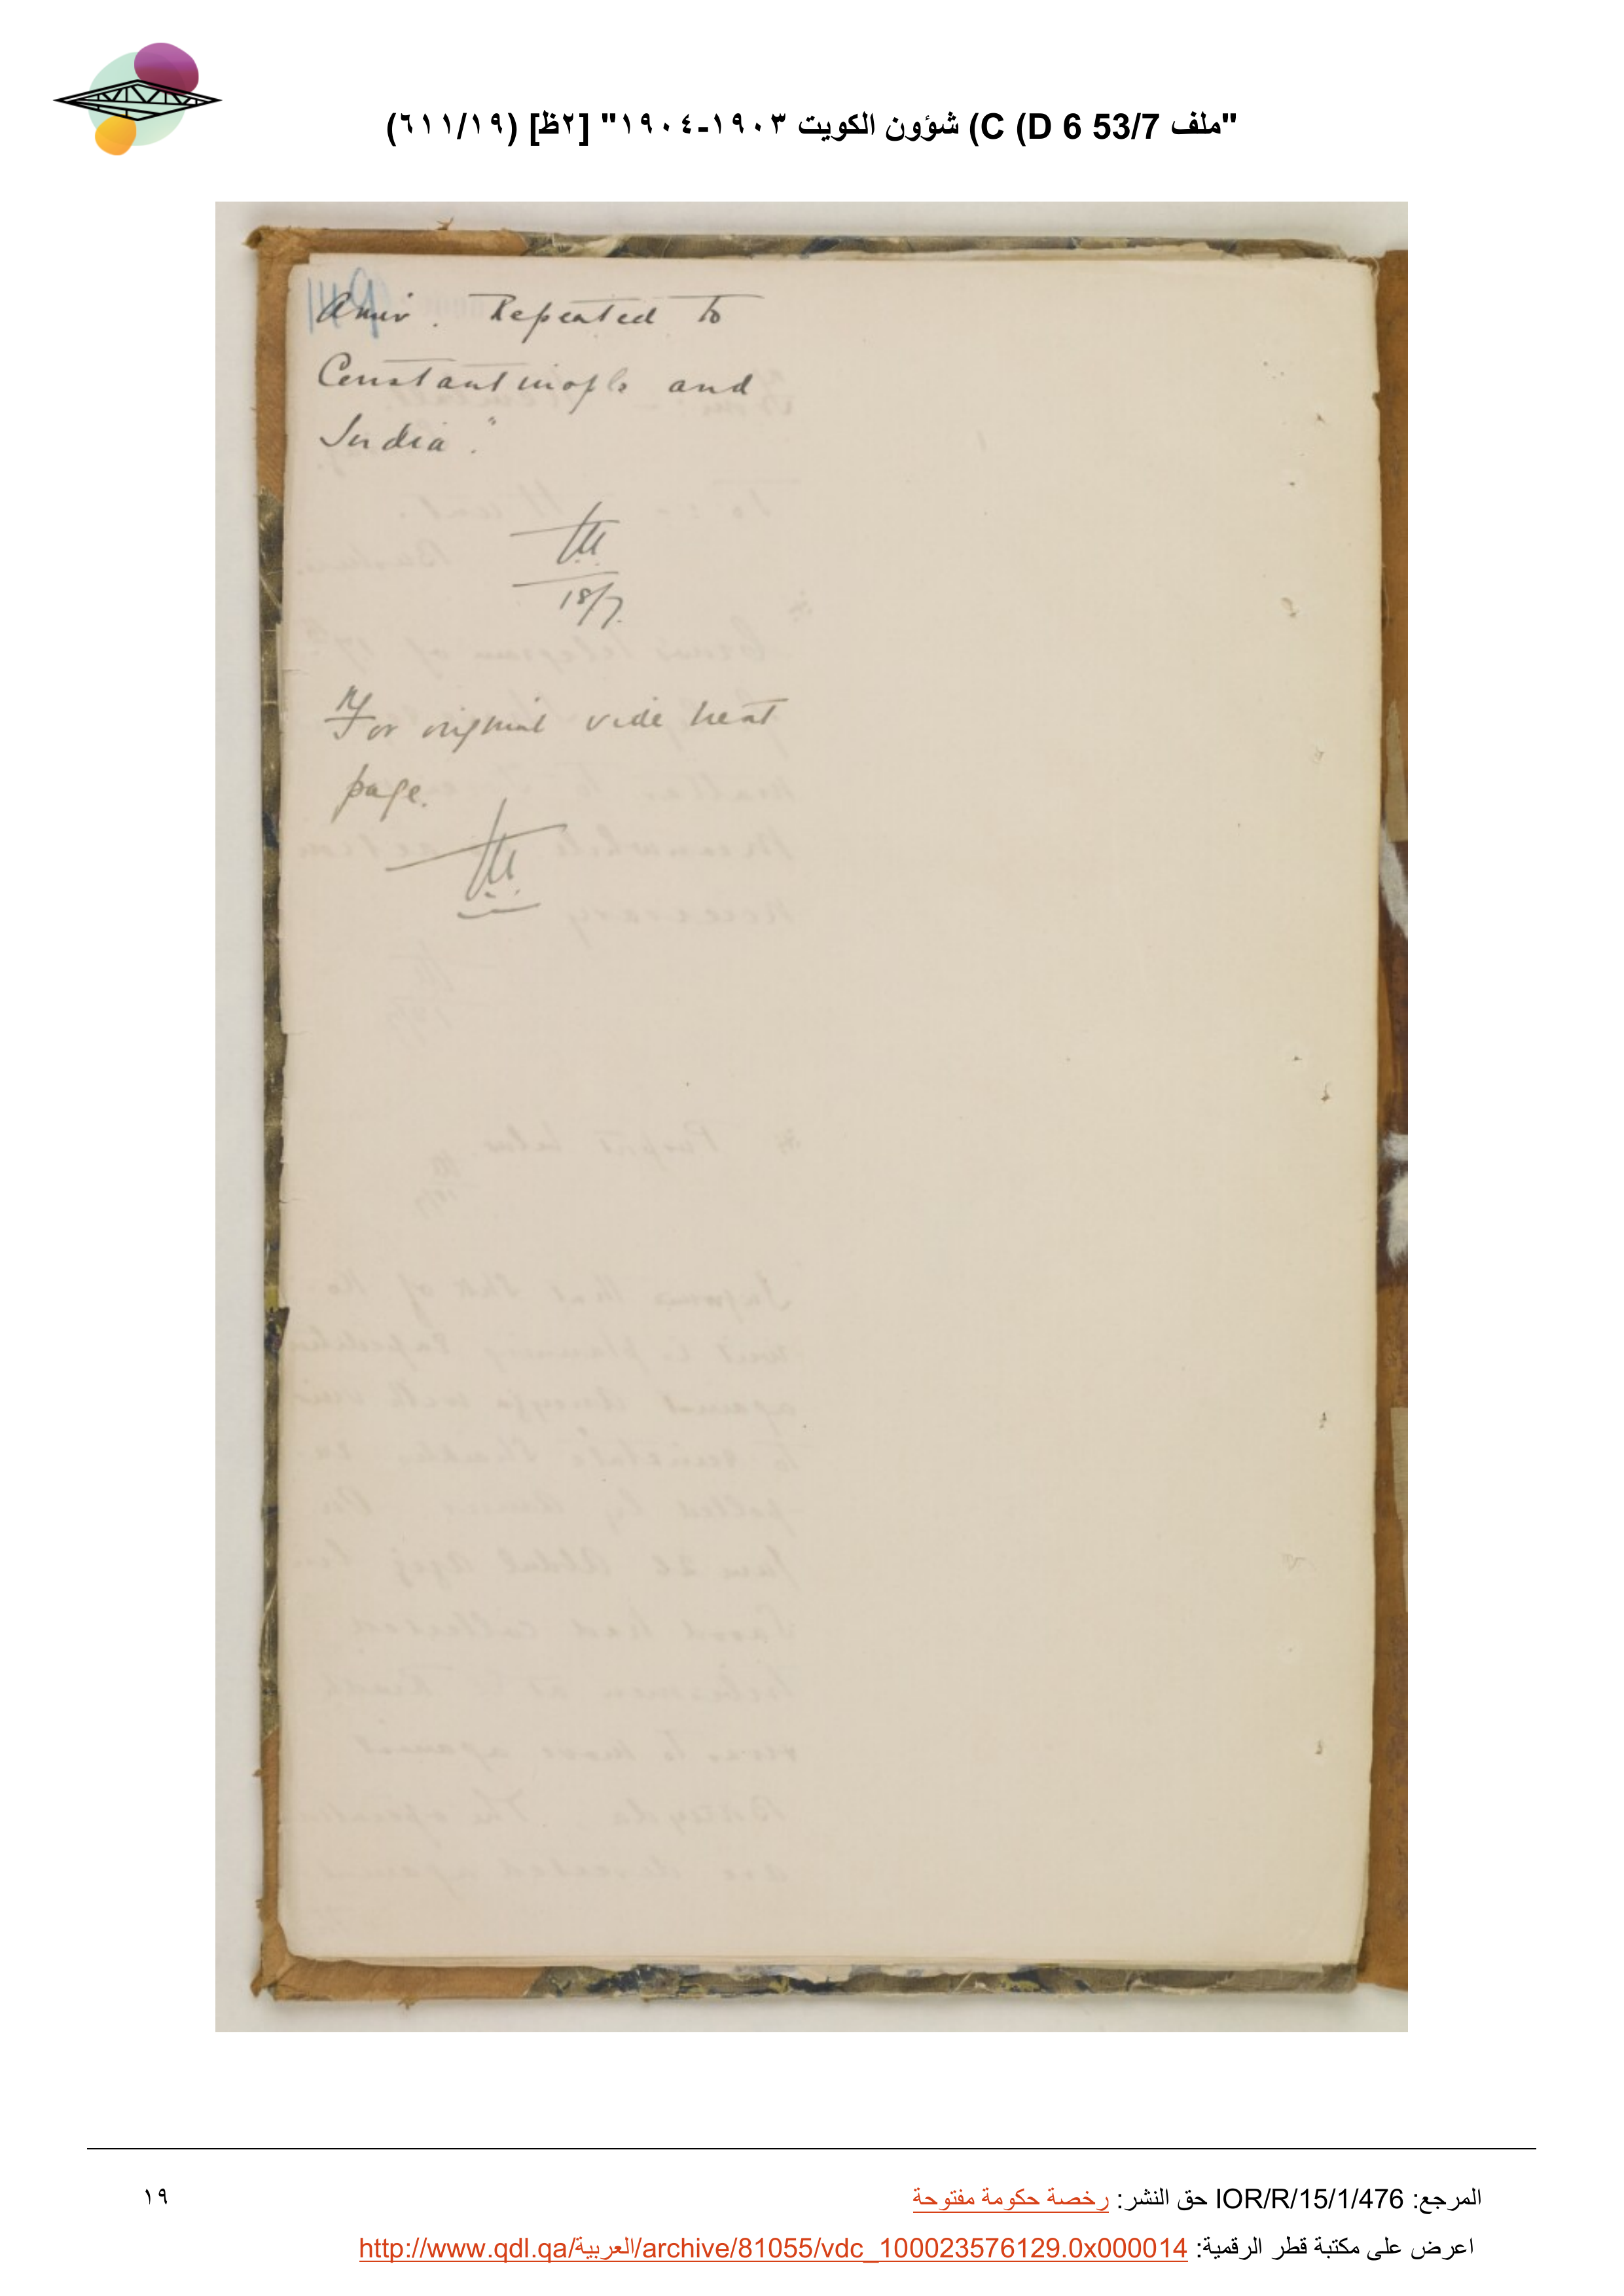 "ملف 53/7 C (D 6) شؤون الكويت ١٩٠٣-١٩٠٤" [٢ظ] (٦١١/١٩)
149
Amir. Repeated to
Constantinople and
India."
18/7.
For original vide next
page.
المرجع: IOR/R/15/1/476 حق النشر: رخصة حكومة مفتوحة
١٩
اعرض على مكتبة قطر الرقمية: http://www.qdl.qa/العربية/archive/81055/vdc_100023576129.0x000014